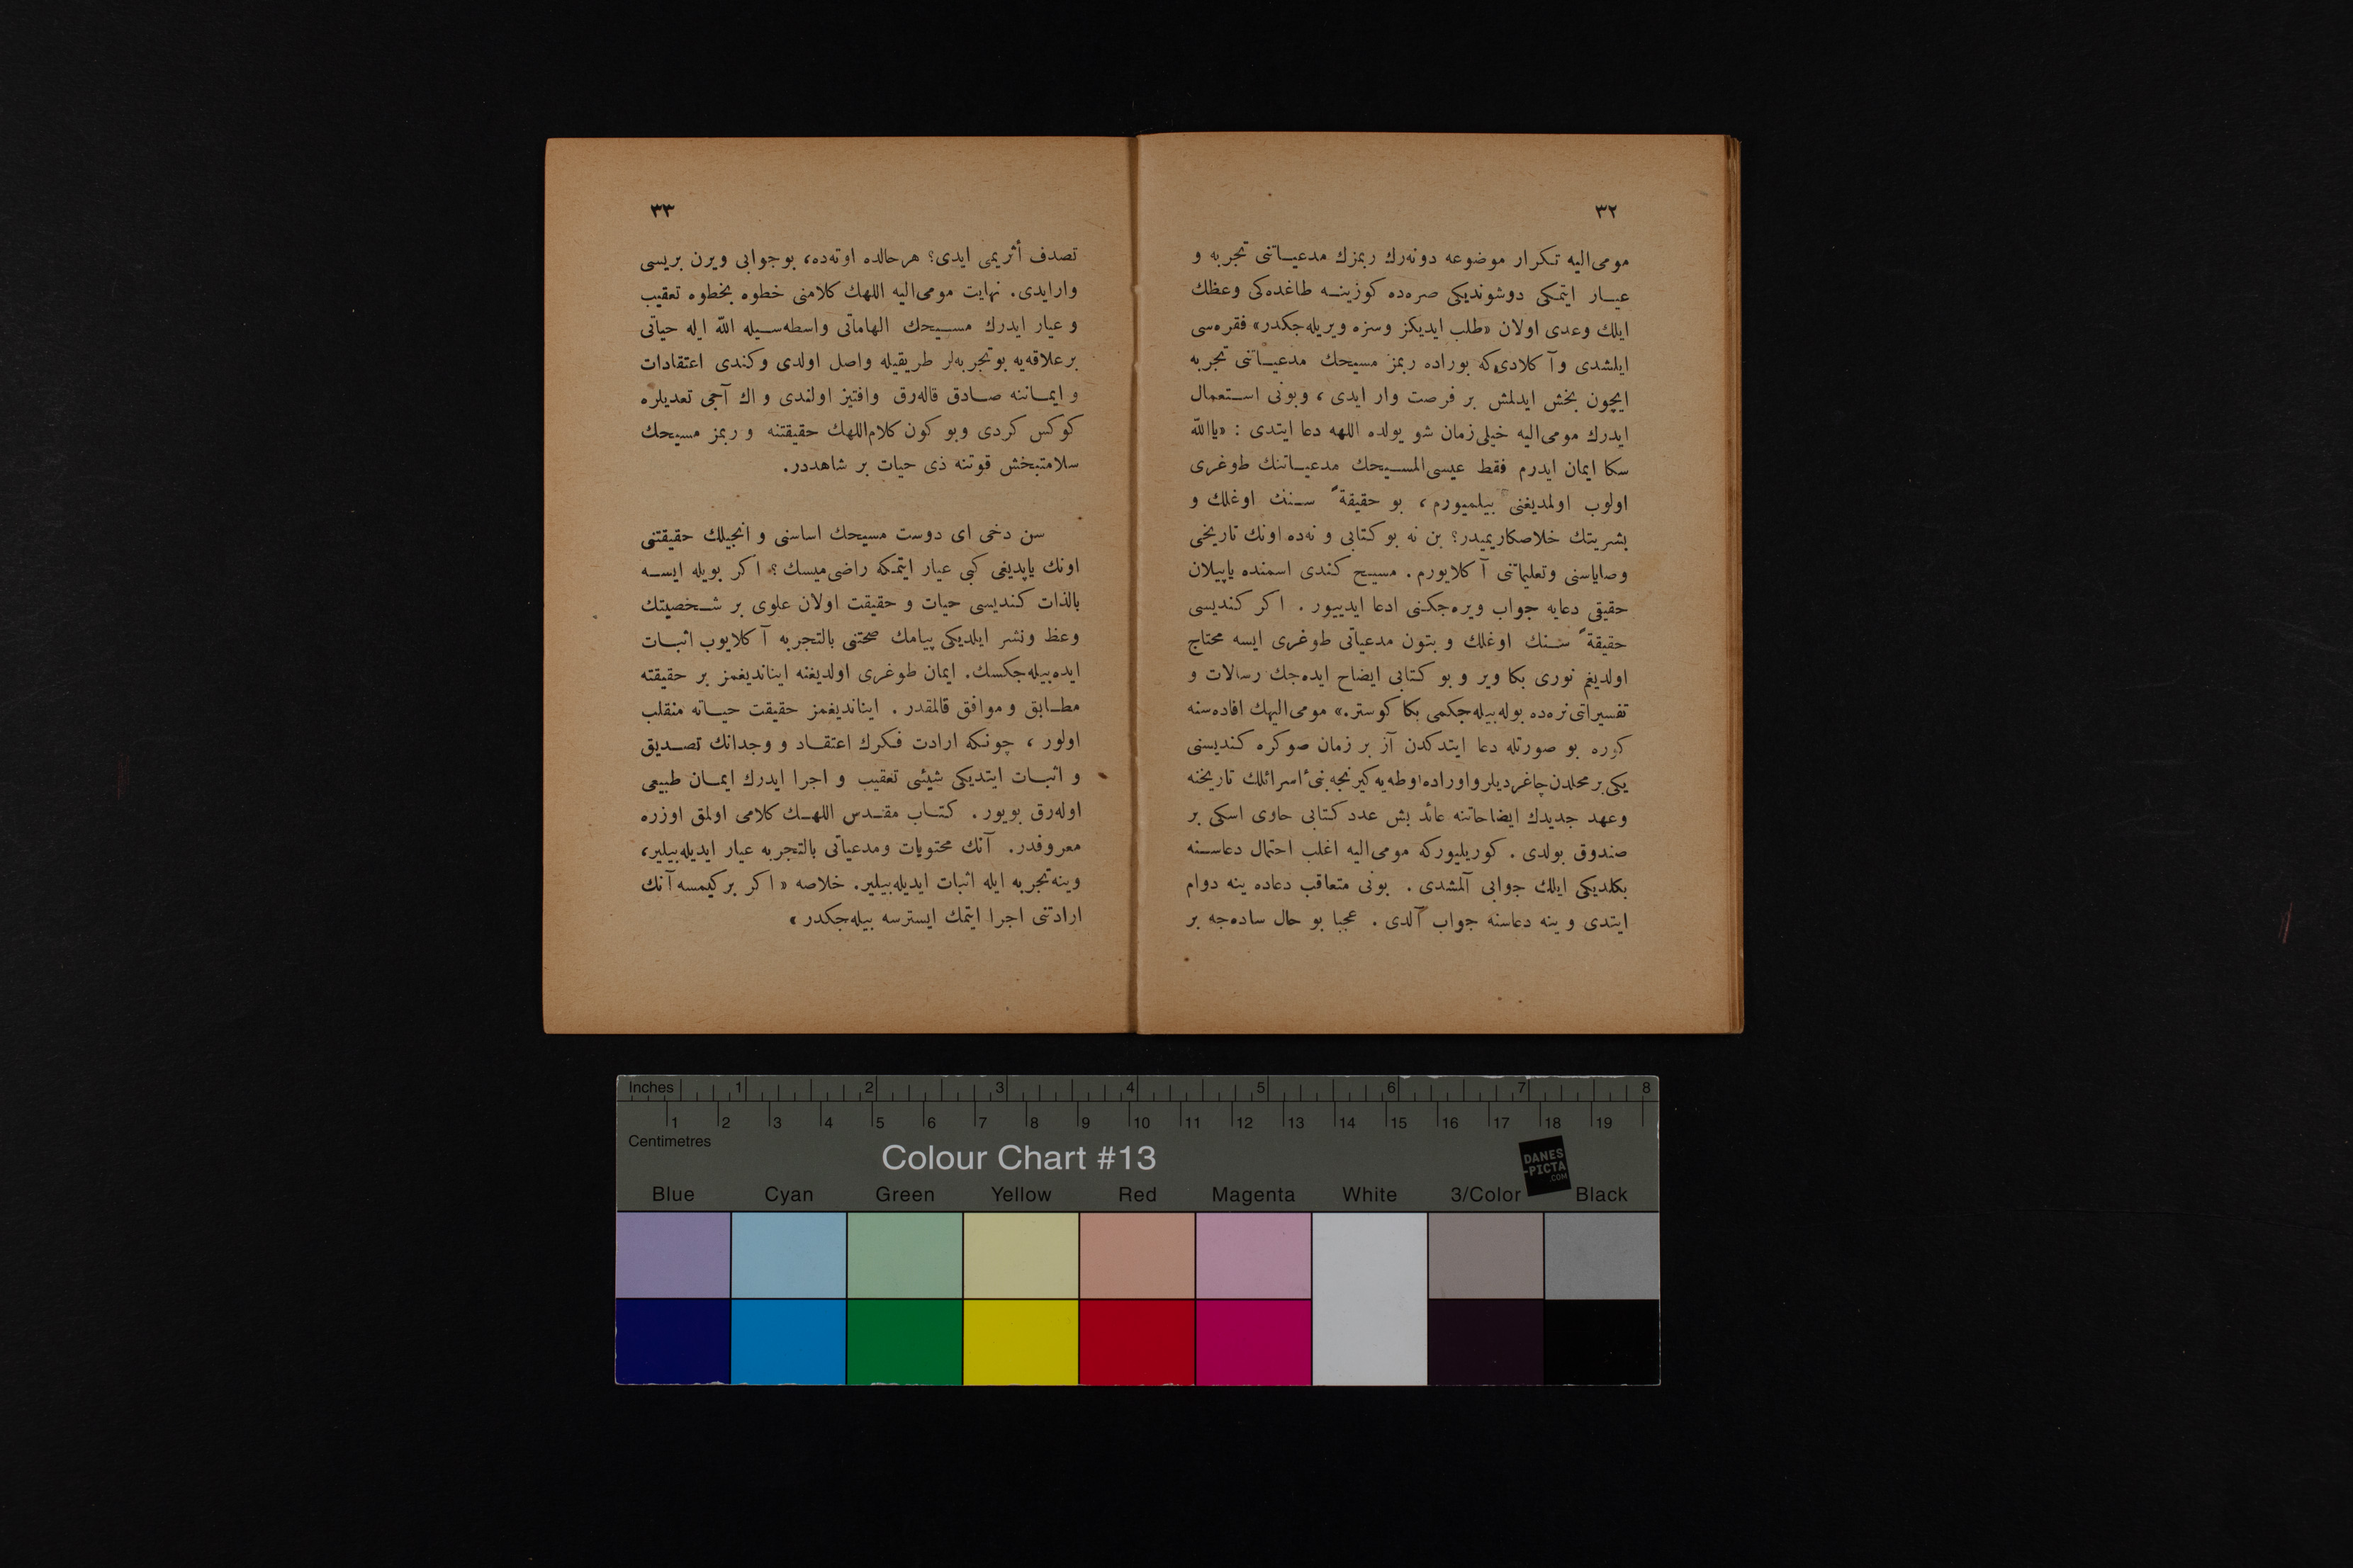 ٣٢
مومى‌اليه تكرار موضوعه دونه‌رك ربمزك مدعيـاتنى تجربه و
عيـار ايتمكى دوشونديكى صره‌ده كوزينـه طاغده‌كى وعظك
ايلك وعدى اولان «طلب ايديكز وسزه ويريله‌جكدر» فقره‌سى
ايلشدى وآ كلادى‌كه بوراده ربمز مسيحك مدعيـاتنى تجربه
ايچون بخش ايدلمش بر فرصت وار ايدى ، وبونى استعمال
ايدرك مومى‌اليه خيلى‌زمان شو يولده اللهه دعا ايتدى : «ياالله
سكا ايمان ايدرم فقط عيسى‌المسـيحك مدعيـاتنك طوغرى
اولوب اولمديغنى بيلميورم ، بو حقيقةً سـنك اوغلك و
بشريتك خلاصكاريميدر؟ بن نه بو كتابى و نه‌ده اونك تاريخى
وصاياسنى وتعليماتنى آ كلايورم . مسيح كندى اسمنده ياپيلان
حقيقى دعايه جواب ويره‌جكنى ادعا ايدييور . اكر كنديسى
حقيقةً سنك اوغلك و بتون مدعياتى طوغرى ايسه محتاج
اولديغم نورى بكا وير و بو كتابى ايضاح ايده‌جك رسالات و
تفسيراتى‌نره‌ده بوله‌بيله‌جكمى بكا كوستر.» مومى‌اليهك افاده‌سنه
كوره بو صورتله دعا ايتدكدن آز بر زمان صوكره كنديسنى
يكى بر محلدن چاغرديلر واوراده اوطه‌يه كيرنجه بنى‌ٔ اسرائلك تاريخنه
وعهد جديدك ايضاحاتنه عائد بش عدد كتابى حاوى اسكى بر
صندوق بولدى . كوريليوركه مومى‌اليه اغلب احتمال دعاسـنه
بكلديكى ايلك جوابى آلمشدى . بونى متعاقب دعاده ينه دوام
ايتدى و ينه دعاسنه جواب آلدى . عجبا بو حال ساده‌جه بر
٣٣
تصدف أثريمى ايدى؟ هرحالده اوته‌ده، بوجوابى ويرن بريسى
وارايدى. نهايت مومى‌اليه اللهك كلامنى خطوه بخطوه تعقيب
و عيار ايدرك مسـيحك الهاماتى واسطه‌سـيله الله ايله حياتى
برعلاقه‌يه بوتجربه‌لر طريقيله واصل اولدى وكندى اعتقادات
و ايمـاننه صـادق قاله‌رق وافتيز اولندى و اك آجى تعديلره
كوكس كردى وبو كون كلام‌اللهك حقيقتنه و ربمز مسيحك
سلامتبخش قوتنه ذى حيات بر شاهددر.
سن دخى اى دوست مسيحك اساسنى و انجيلك حقيقتنى
اونك ياپديغى كبى عيار ايتمكه راضى‌ميسك ؟ اكر بويله ايسـه
بالذات كنديسى حيات و حقيقت اولان علوى بر شـخصيتك
وعظ ونشر ايلديكى پيامك صحتنى بالتجربه آ كلايوب اثبـات
ايده‌بيله‌جكسك. ايمان طوغرى اولديغنه اينانديغمز بر حقيقته
مطـابق وموافق قالمقدر . اينانديغمز حقيقت حيـاته منقلب
اولور ، چونكه ارادت فكرك اعتقـاد و وجدانك تصـديق
و اثبـات ايتديكى شيئى تعقيب و اجرا ايدرك ايمـان طبيعى
اوله‌رق بويور . كتـاب مقـدس اللهـك كلامى اولمق اوزره
معروفدر. آنك محتويات ومدعياتى بالتجربه عيار ايديله‌بيلير،
وينه‌تجربه ايله اثبات ايديله‌بيلير. خلاصه « اكر بركيمسه آنك
ارادتنى اجرا ايتمك ايسترسه بيله‌جكدر »
Inches 1 2 3 4 5 6 7 8
1 2 3 4 5 6 7 8 9 10 11 12 13 14 15 16 17 18 19
Centimetres
Colour Chart #13
DANES
-PICTA
.COM
Blue Cyan Green Yellow Red Magenta White 3/Color Black